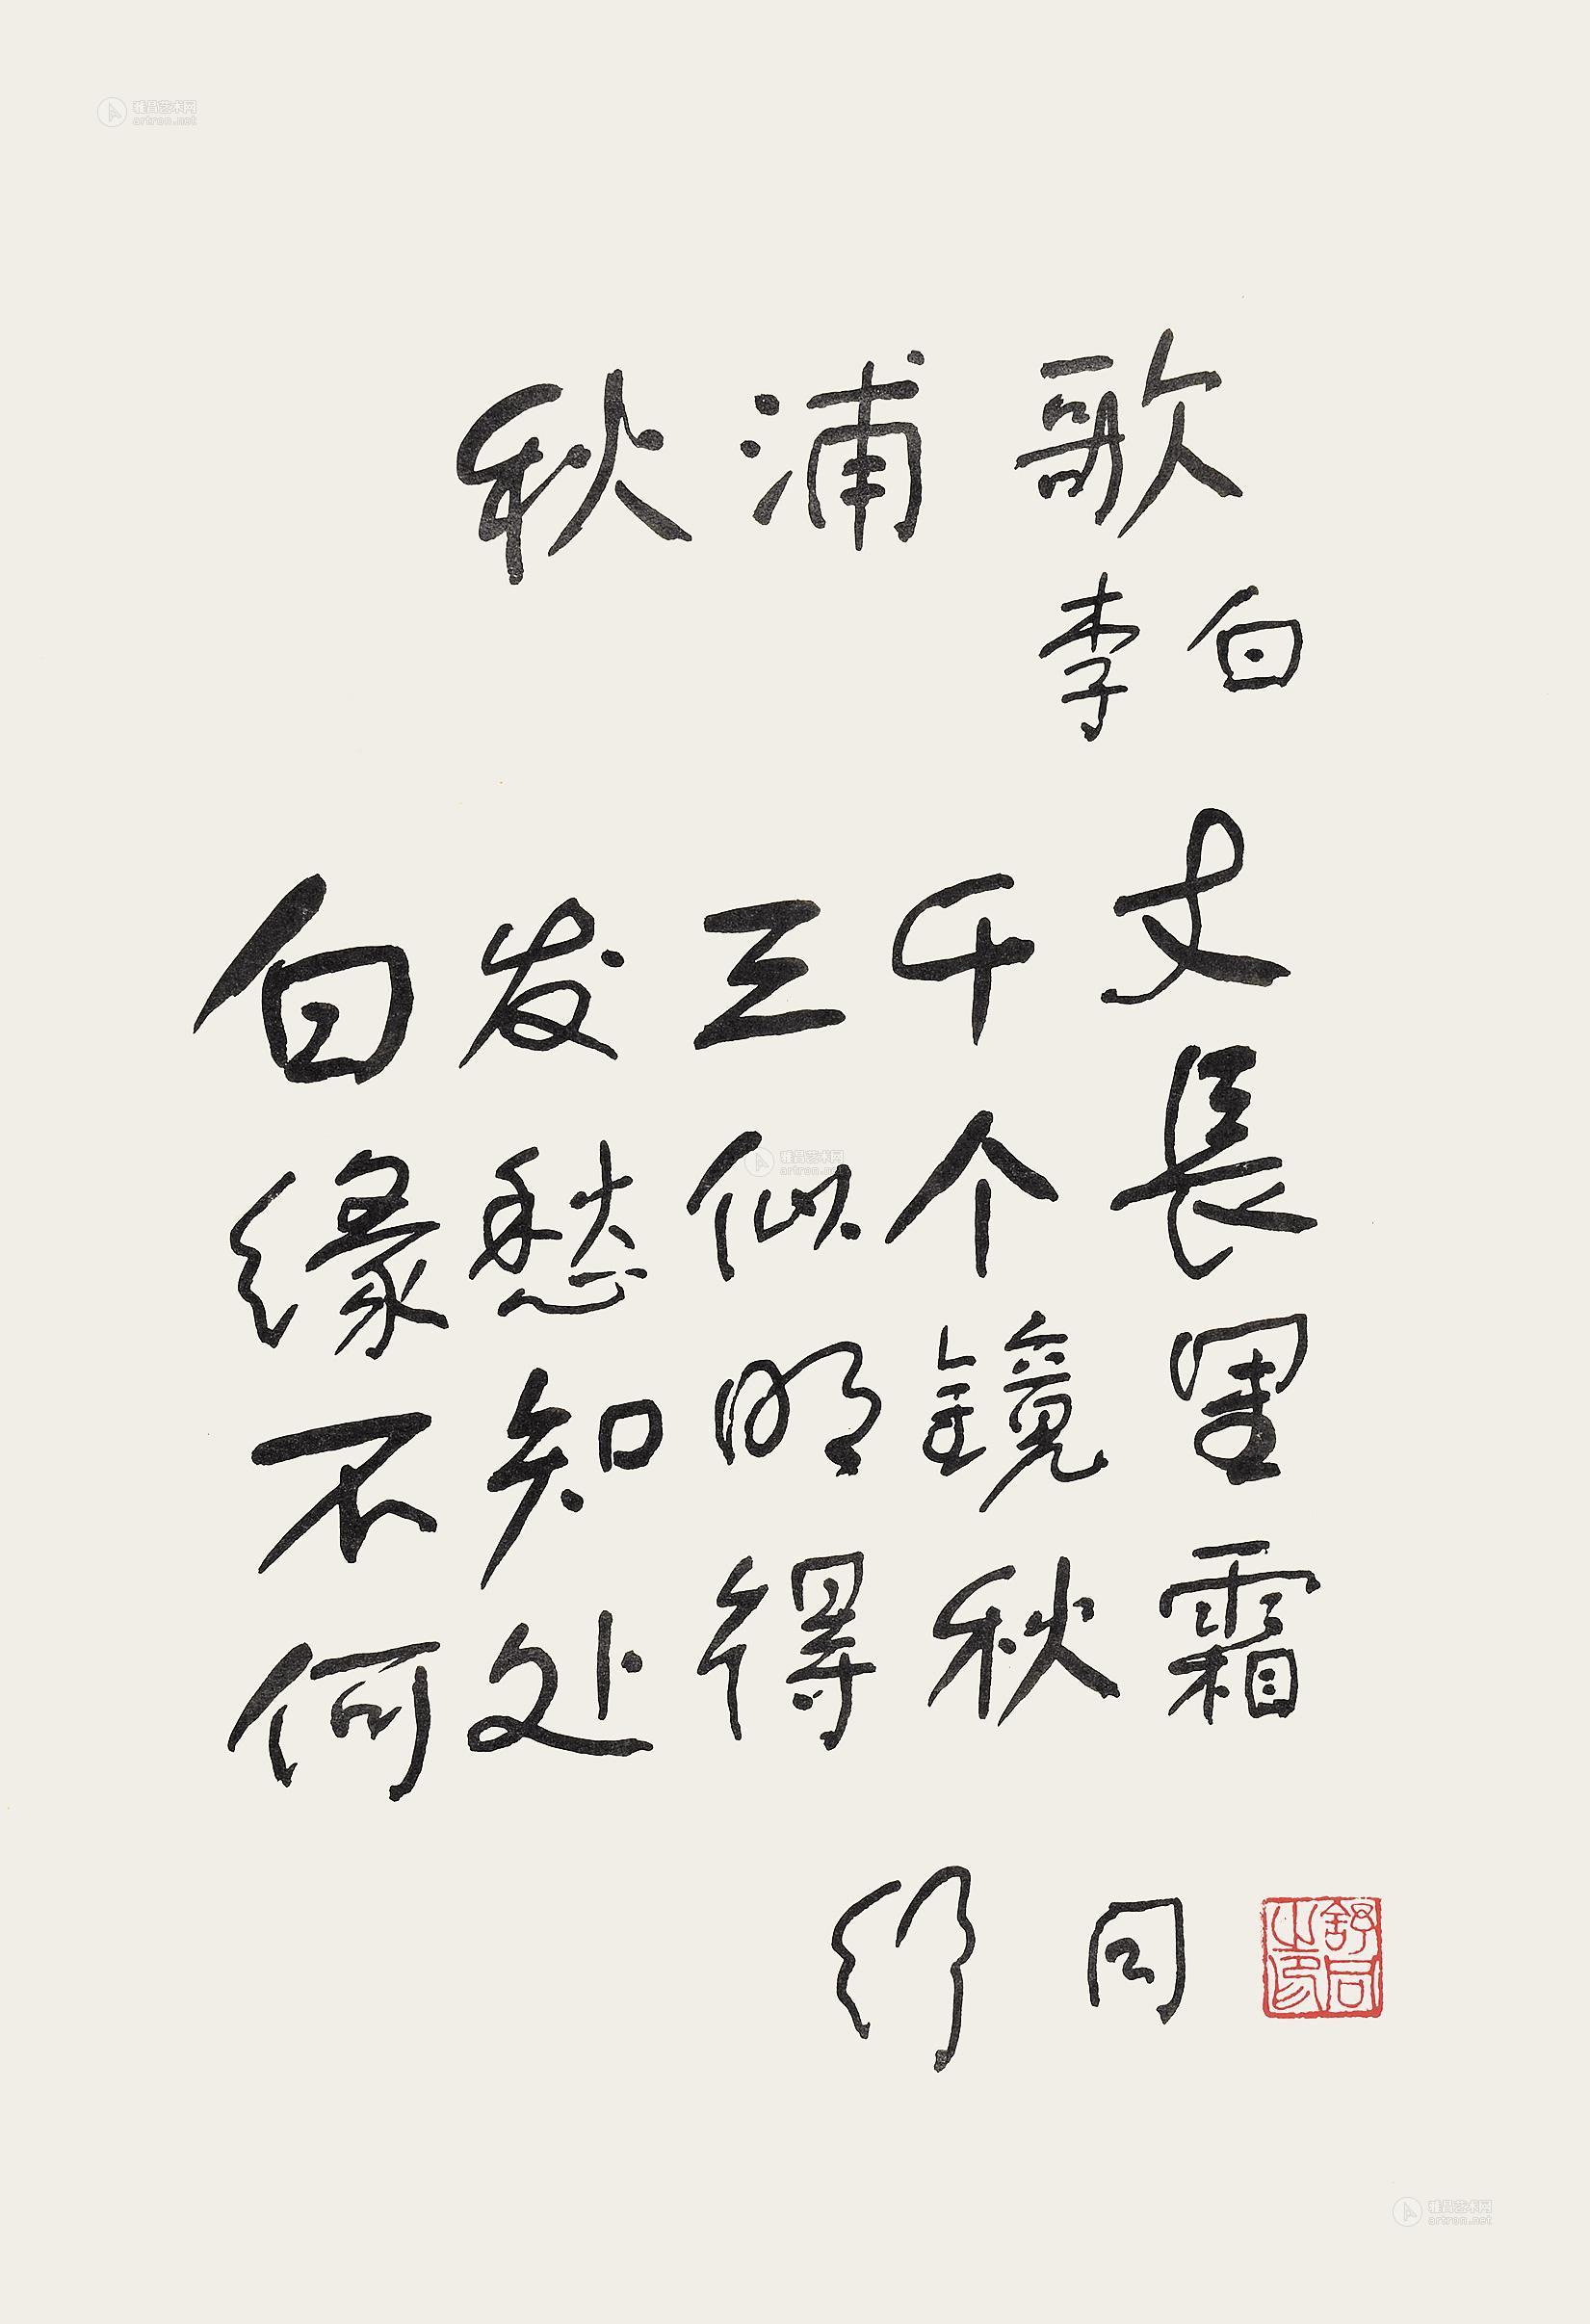 雅昌艺术网
artron.net
秋浦歌
李白
白发三千丈
缘愁似个长
不知明镜里
何处得秋霜
雅昌艺术网
artron.net
舒同
舒同之印
雅昌艺术网
artron.net